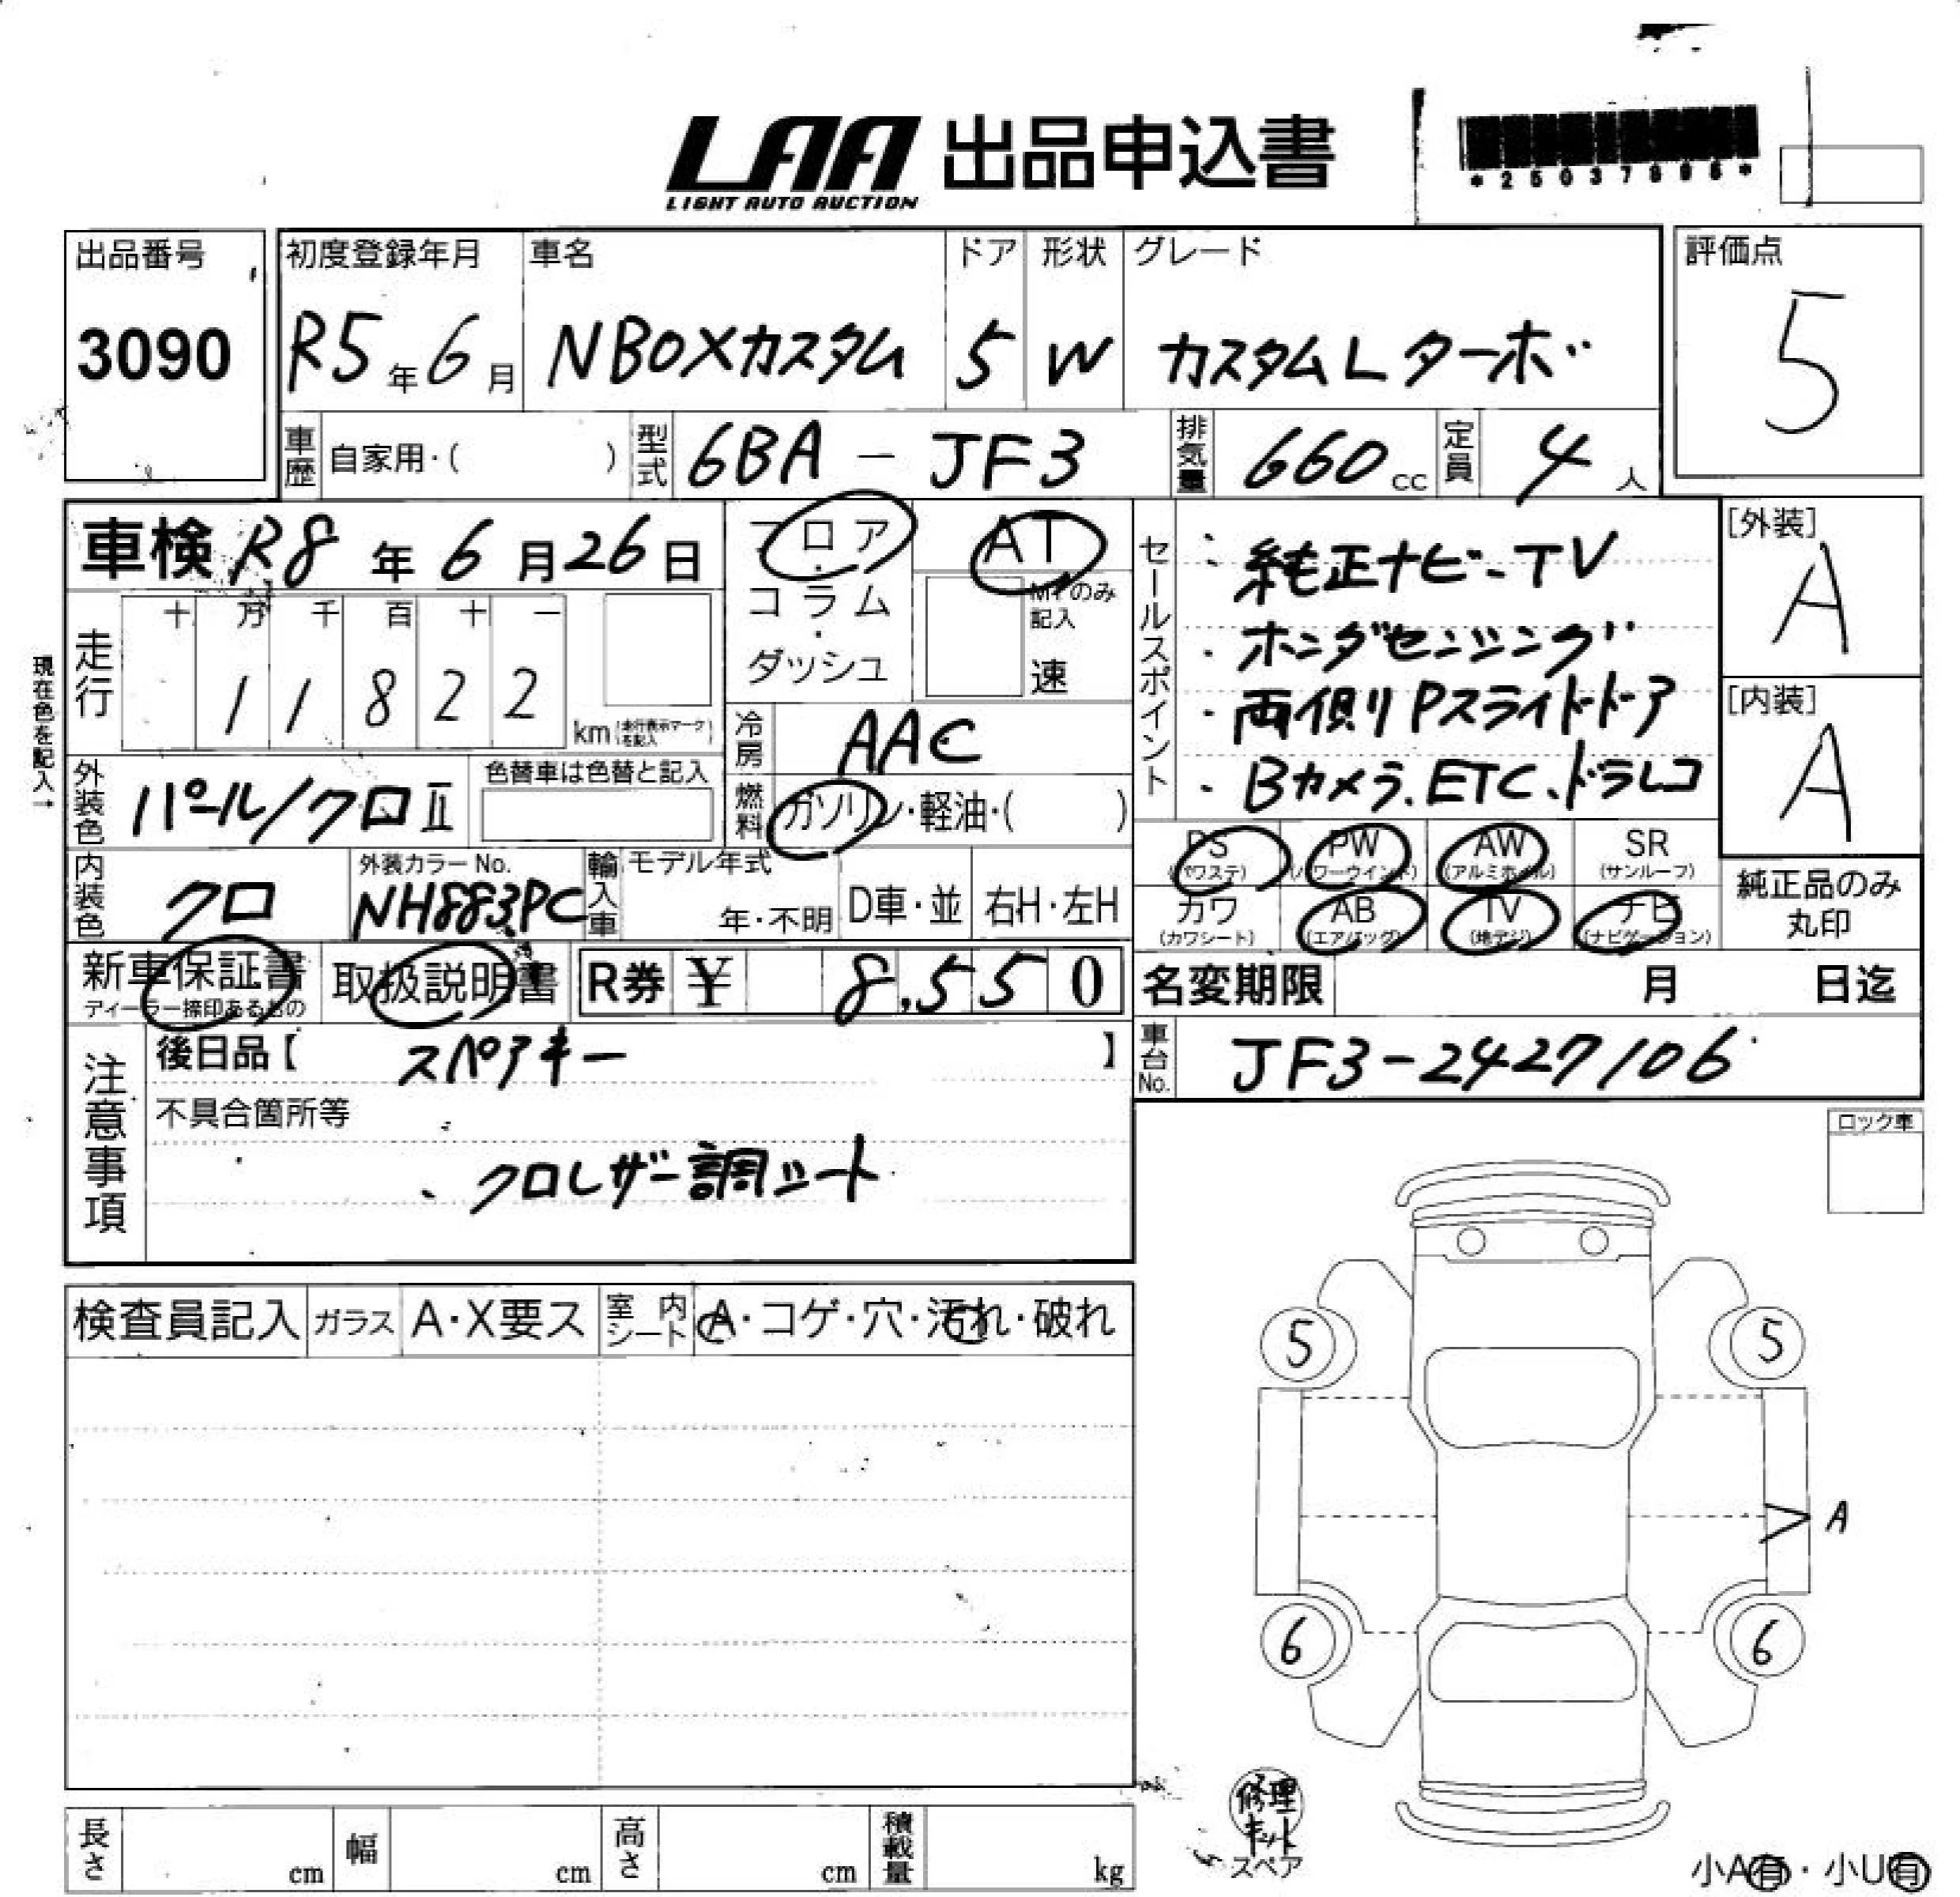 LAA 出品申込書
LIGHT AUTO AUCTION
出品番号
3090
初度登録年月
R5年6月
車名
NBOXカスタム
ドア
5
形状
W
グレード
カスタムLターボ
評価点
5
車歴 自家用・( )
型式 6BA - JF3
排気量 660cc
定員 4人
車検 R8年6月26日
フロア・コラム・ダッシュ
AT
MTのみ記入
速
走行
十 万 千 百 十 一
1 1 8 2 2
km (走行表示マークを記入)
現在色を記入→
冷房 AAC
燃料 ガソリン・軽油・( )
外装色 パール/クロⅡ
色替車は色替と記入
内装色 クロ
外装カラーNo.
NH883PC
輸入車 モデル年式
年・不明 D車・並 右H・左H
セールスポイント
・純正ナビ-TV
・ホンダセンシング
・両側りPスライドドア
・Bカメラ.ETC.ドラレコ
[外装]
A
[内装]
A
PS (パワステ) PW (パワーウインド) AW (アルミホイル) SR (サンルーフ)
カワ (カワシート) AB (エアバッグ) TV (地デジ) ナビ (ナビゲーション)
純正品のみ
丸印
新車保証書
ディーラー捺印あるもの
取扱説明書
R券 ¥ 8,550
名変期限 月 日迄
注意事項
後日品【 スペアキー 】
不具合箇所等
、クロレザー調シート
車台No. JF3-2427106
ロック車
検査員記入 ガラス A・X要ス 室内シート A・コゲ・穴・汚れ・破れ
5 5
A
6 6
修理
キット
スペア
小A有・小U有
長さ cm 幅 cm 高さ cm 積載量 kg